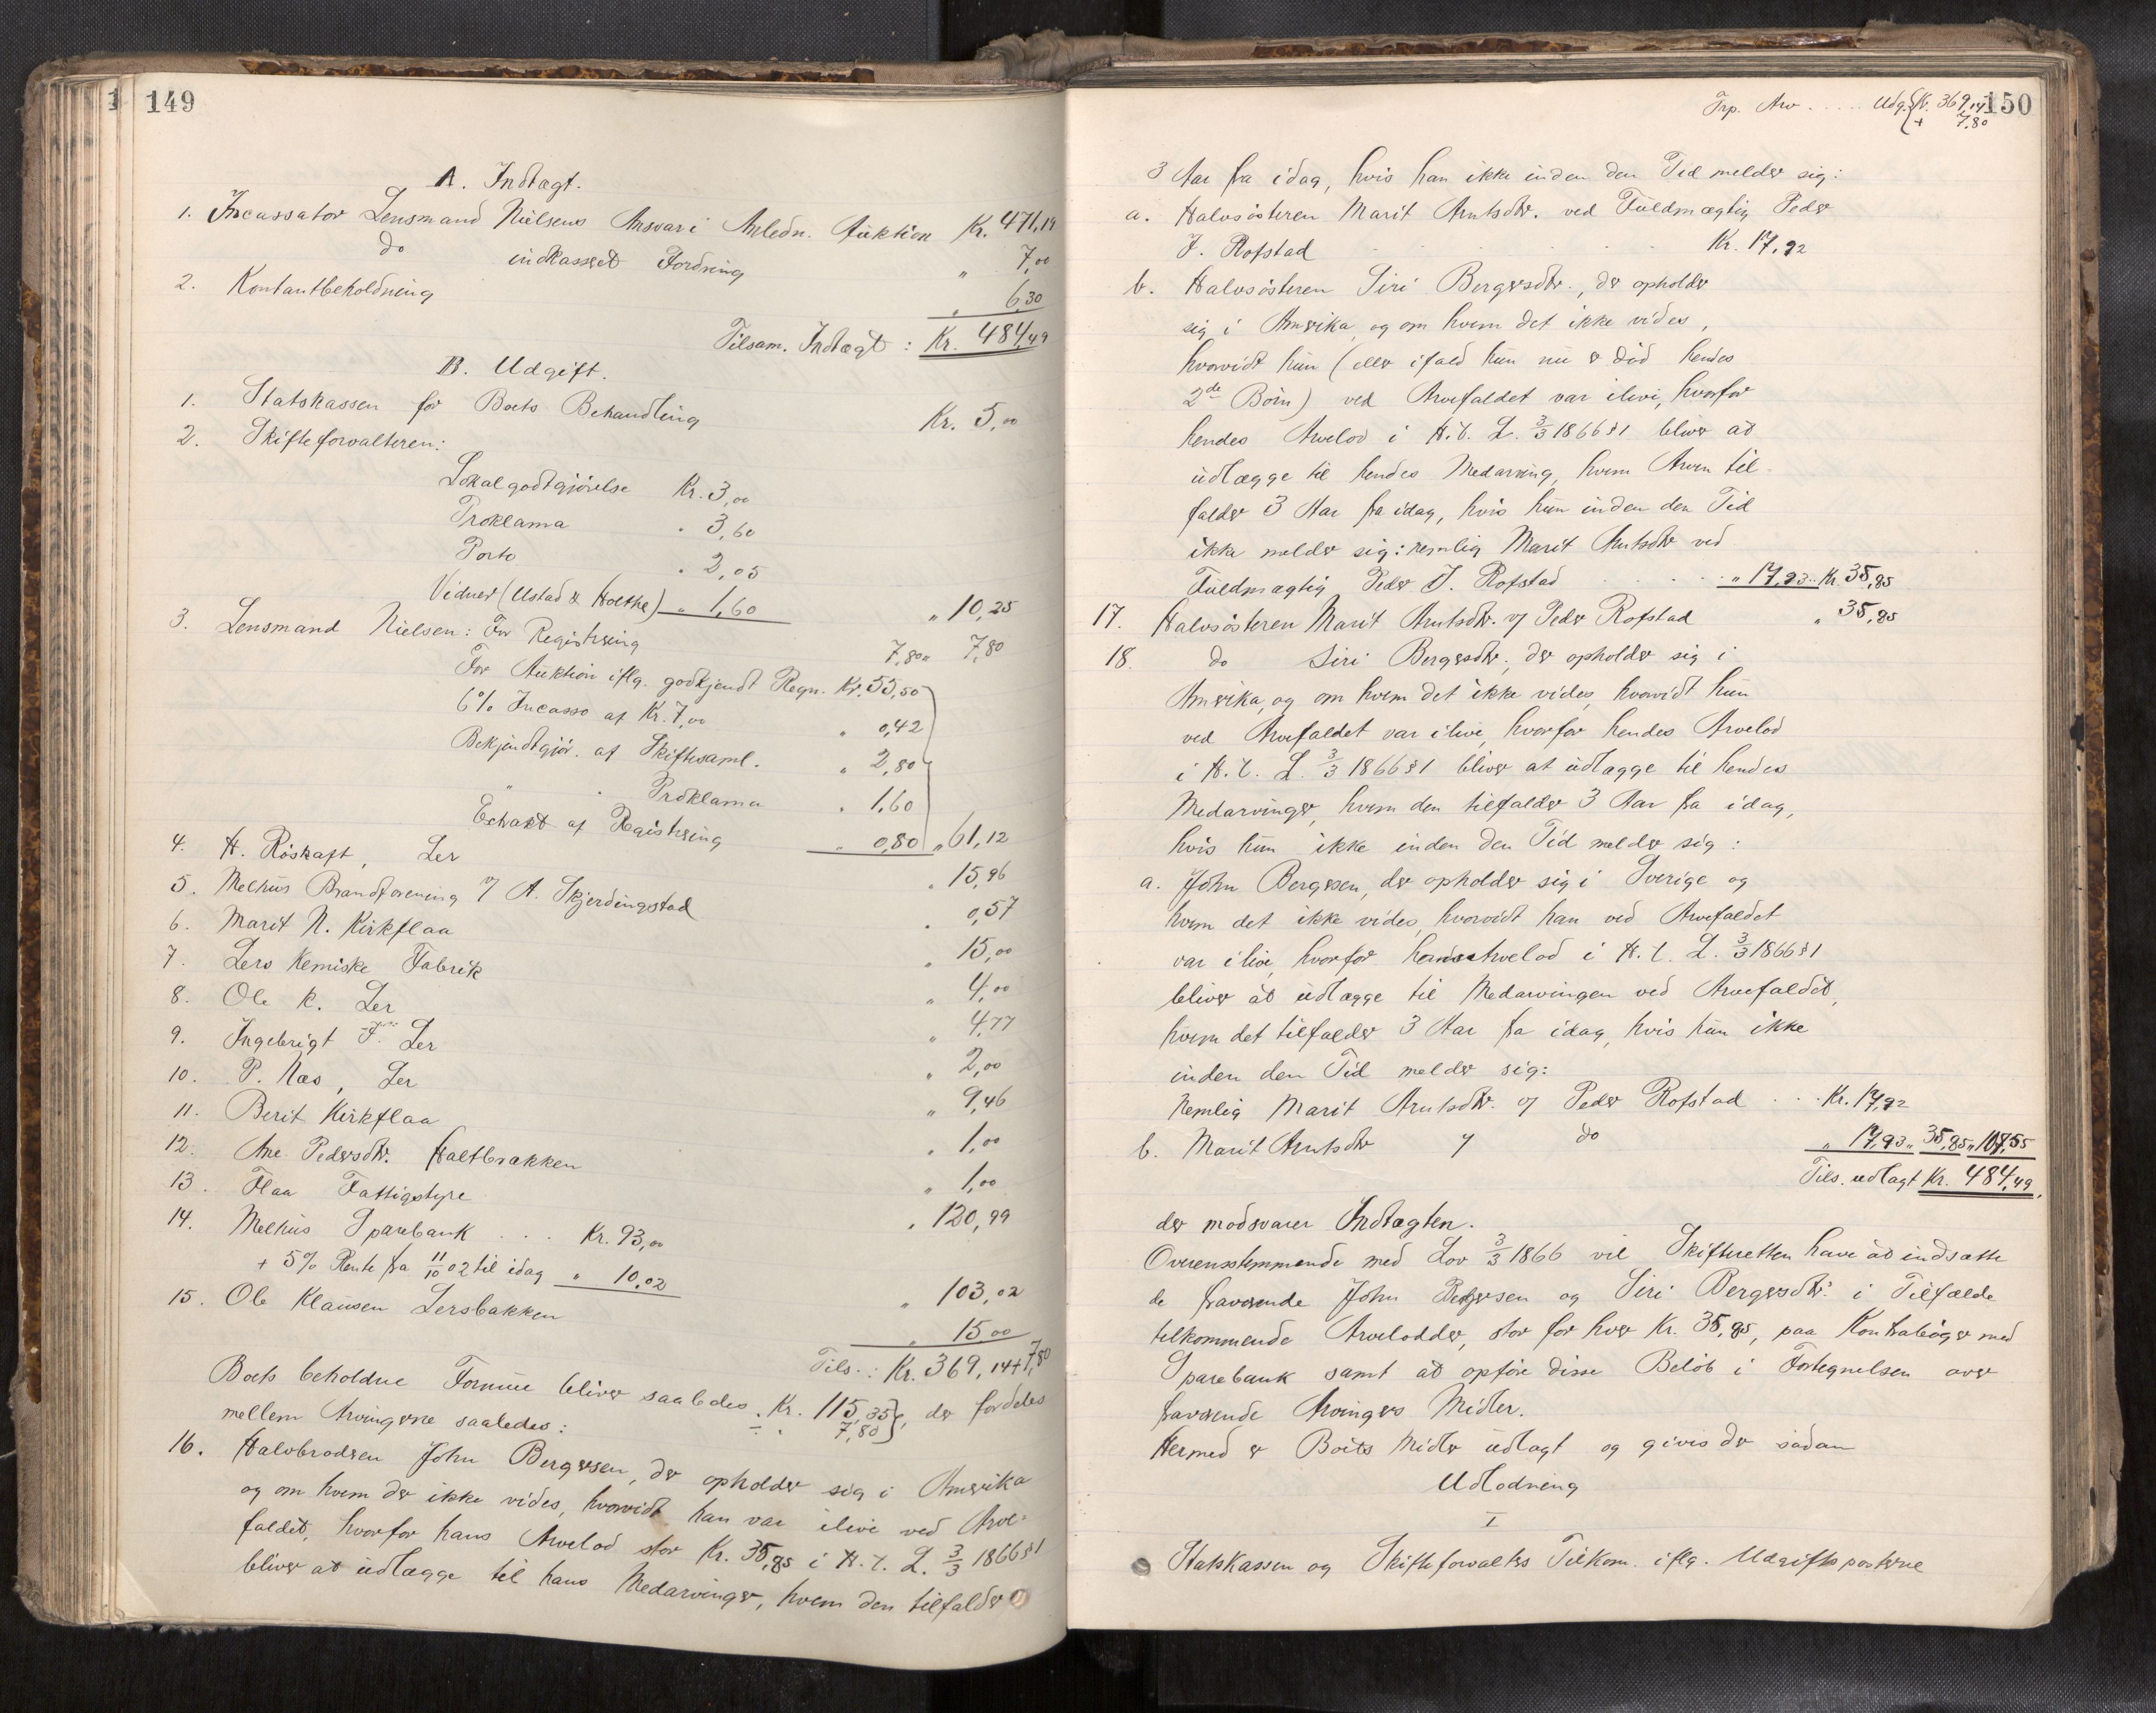 149
A. Indtægt.
1. Incassator Lensmand Nielsens Ansvar i Anledn. Auktion Kr. 471,19
do indkasseret Fordring " 7,00
2. Kontantbeholdning " 6,30
Tilsam. Indtægt : Kr. 484,49
B. Udgift.
1. Statskassen for Boets Behandling Kr. 5,00
2. Skifteforvalteren:
Lokalgodtgjörelse Kr. 3,00
Proklama " 3,60
Porto " 2,05
Vidner (Ustad & Holthe) " 1,60 " 10,25
3. Lensmand Nielsen: For Registrering 7,80 " 7,80
For Auktion iflg. godkjendt Regn. Kr. 55,50
6% Incasso af Kr. 7,00 " 0,42
Bekjendtgjör. af Skiftesaml. " 2,80
" " Proklama " 1,60
Extrakt af Registrering " 0,80 " 61,12
4. H. Röskaft, Ler " 15,96
5. Melhus Brandforening v/ A. Skjerdingstad " 0,57
6. Marit N. Kirkflaa " 15,00
7. Lers Kemiske Fabrik " 4,00
8. Ole K. Ler " 4,77
9. Ingebrigt J. Ler " 2,00
10. P. Næs, Ler " 9,46
11. Berit Kirkflaa " 1,00
12. Ane Pedersdtr. Haltbrækken " 1,00
13. Flaa Fattigstyre " 120,99
14. Melhus Sparebank . . . Kr. 93,00
+ 5% Rente fra 11/10 02 til idag " 10,02 " 103,02
15. Ole Klausen Lersbakken " 15,00
Tils.: Kr. 369,14 + 7,80
Boets beholdne Formue bliver saaledes Kr. 115,35 ÷ " 7,80, der fordeles
mellem Arvingerne saaledes:
16. Halvbroderen John Bergersen, der opholder sig i Amerika
og om hvem der ikke vides, hvorvidt han var ilive ved Arve-
faldet, hvorfor hans Arvelod stor Kr. 35,85 i H. t. L. 3/3 1866 § 1
bliver at udlægge til hans Medarvinger, hvem den tilfalder
Trp. Arv . . . . . Udg. {Kr. 369,14 + 7,80
150
3 Aar fra idag, hvis han ikke inden den Tid melder sig:
a. Halvsösteren Marit Arntsdtr. ved Fuldmægtig Peder
J. Rofstad . . . . . . Kr. 17,92
b. Halvsösteren Siri Bergersdtr., der opholder
sig i Amerika og om hvem det ikke vides,
hvorvidt hun (eller ifald hun nu er död hendes
2de Börn) ved Arvefaldet var ilive, hvorfor
hendes Arvelod i H. t. L. 3/3 1866 § 1 bliver at
udlægge til hendes Medarving, hvem Arven til-
falder 3 Aar fra idag, hvis hun inden den Tid
ikke melder sig: nemlig Marit Arntsdtr ved
Fuldmægtig Peder J. Rofstad . . . . " 17,93 " Kr. 35,85
17. Halvsösteren Marit Arntsdtr. v/ Peder Rofstad " 35,85
18. do Siri Bergersdtr., der opholder sig i
Amerika, og om hvem det ikke vides, hvorvidt hun
ved Arvefaldet var ilive, hvorfor hendes Arvelod
i H. t. L. 3/3 1866 § 1 bliver at udlægge til hendes
Medarvinger, hvem den tilfalder 3 Aar fra idag,
hvis hun ikke inden den Tid melder sig:
a. John Bergersen, der opholder sig i Sverige og
hvem det ikke vides, hvorvidt han ved Arvefaldet
var ilive, hvorfor hans Arvelod i H. t. L. 3/3 1866 § 1
bliver at udlægge til Medarvingen ved Arvefaldet,
hvem det tilfalder 3 Aar fra idag, hvis hun ikke
inden den Tid melder sig:
nemlig Marit Arntsdtr. v/ Peder Rofstad . . . Kr. 17,92
b. Marit Arntsdtr v/ do " 17,93 " 35,85 " 107,55
Tils. udlagt Kr. 484,49,
der modsvarer Indtægten.
Overensstemmende med Lov 3/3 1866 vil Skifteretten have at indsætte
de fraværende John Bergersen og Siri Bergersdtr. i Tilfælde
tilkommende Arvelodder, stor for hver Kr. 35,85, paa Kontraböger med
Sparebank samt at opföre disse Belöb i Fortegnelsen over
fraværende Arvingers Midler.
Hermed er Boets Midler udlagt og gives der sådan
Udlodning
I
Statskassen og Skifteforvalters Tilkom. iflg. Udgiftsposterne